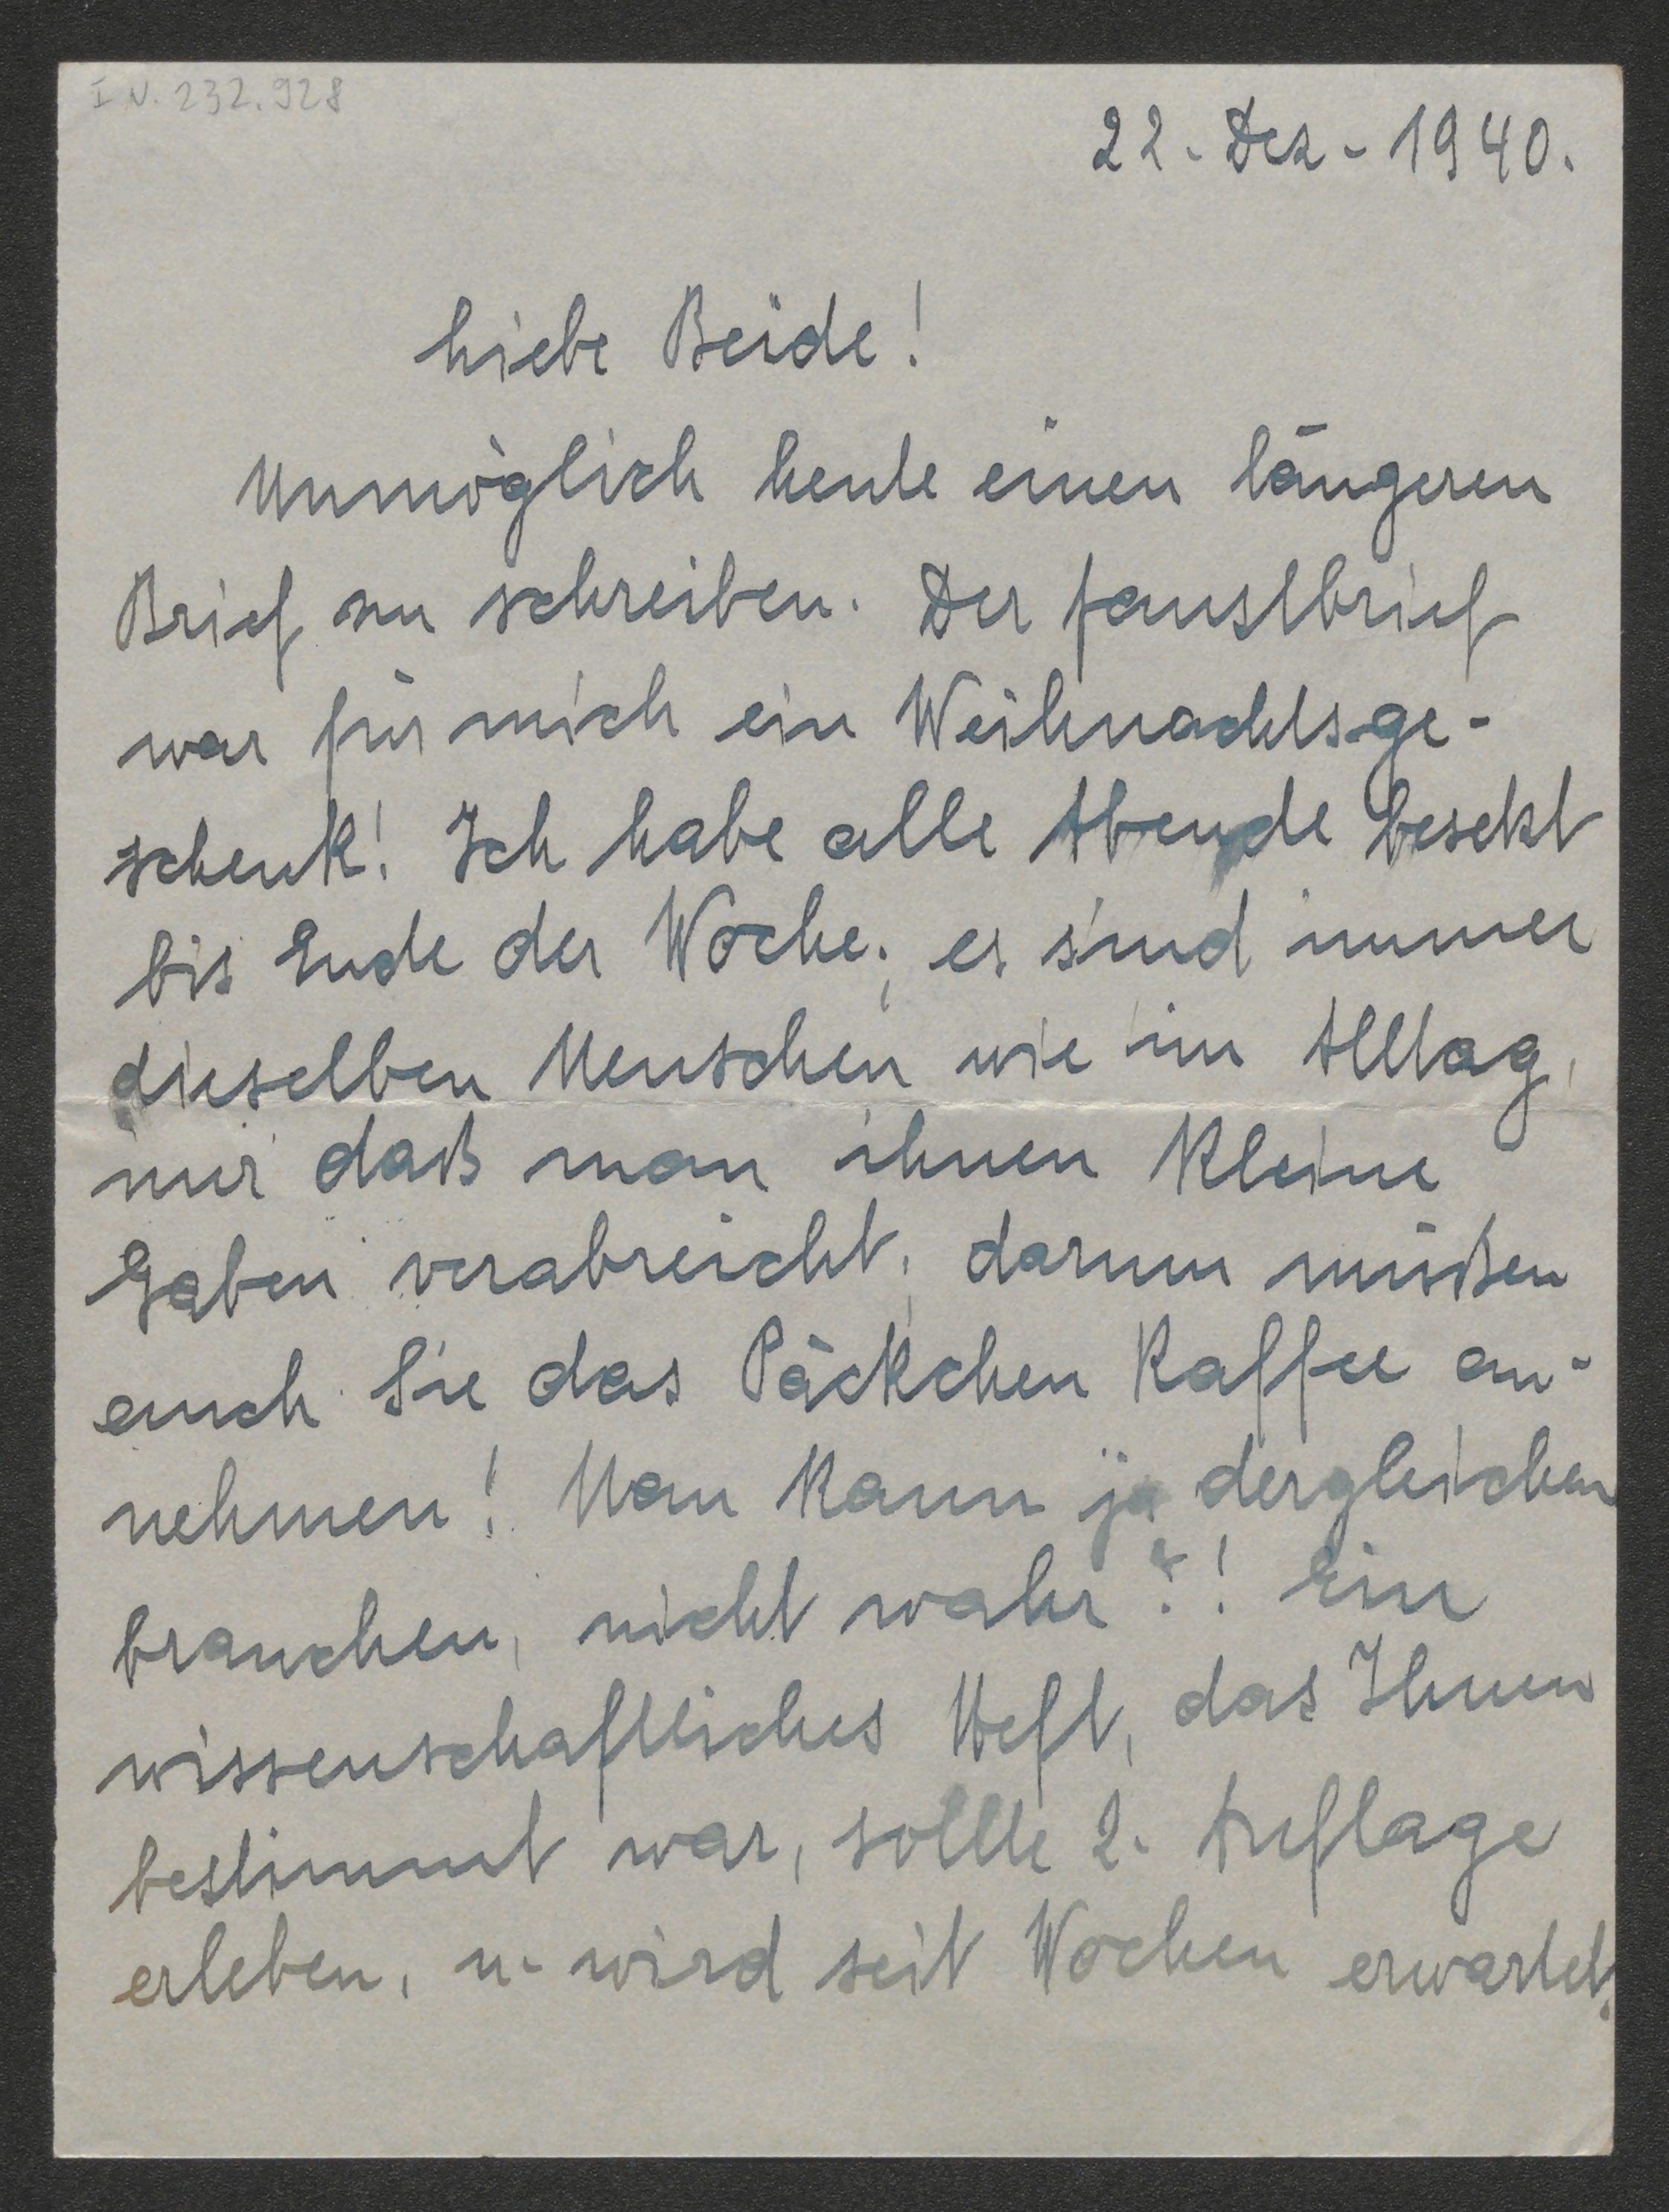 I N. 232.928
22. Dez. 1940.
Liebe Beide!
Unmöglich heute einen längeren
Brief zu schreiben. Der Faustbrief
war für mich ein Weihnachtsge-
schenk! Ich habe alle Abende besetzt
bis Ende der Woche; es sind immer
dieselben Menschen wie im Alltag,
nur daß man ihnen kleine
Gaben verabreicht; darum müßen
auch Sie das Päckchen Kaffee an-
nehmen! Man kann ja dergleichen
brauchen, nicht wahr?! Ein
wissenschaftliches Heft, das Ihnen
bestimmt war, sollte 2. Auflage
erleben, u. wird seit Wochen erwartet.